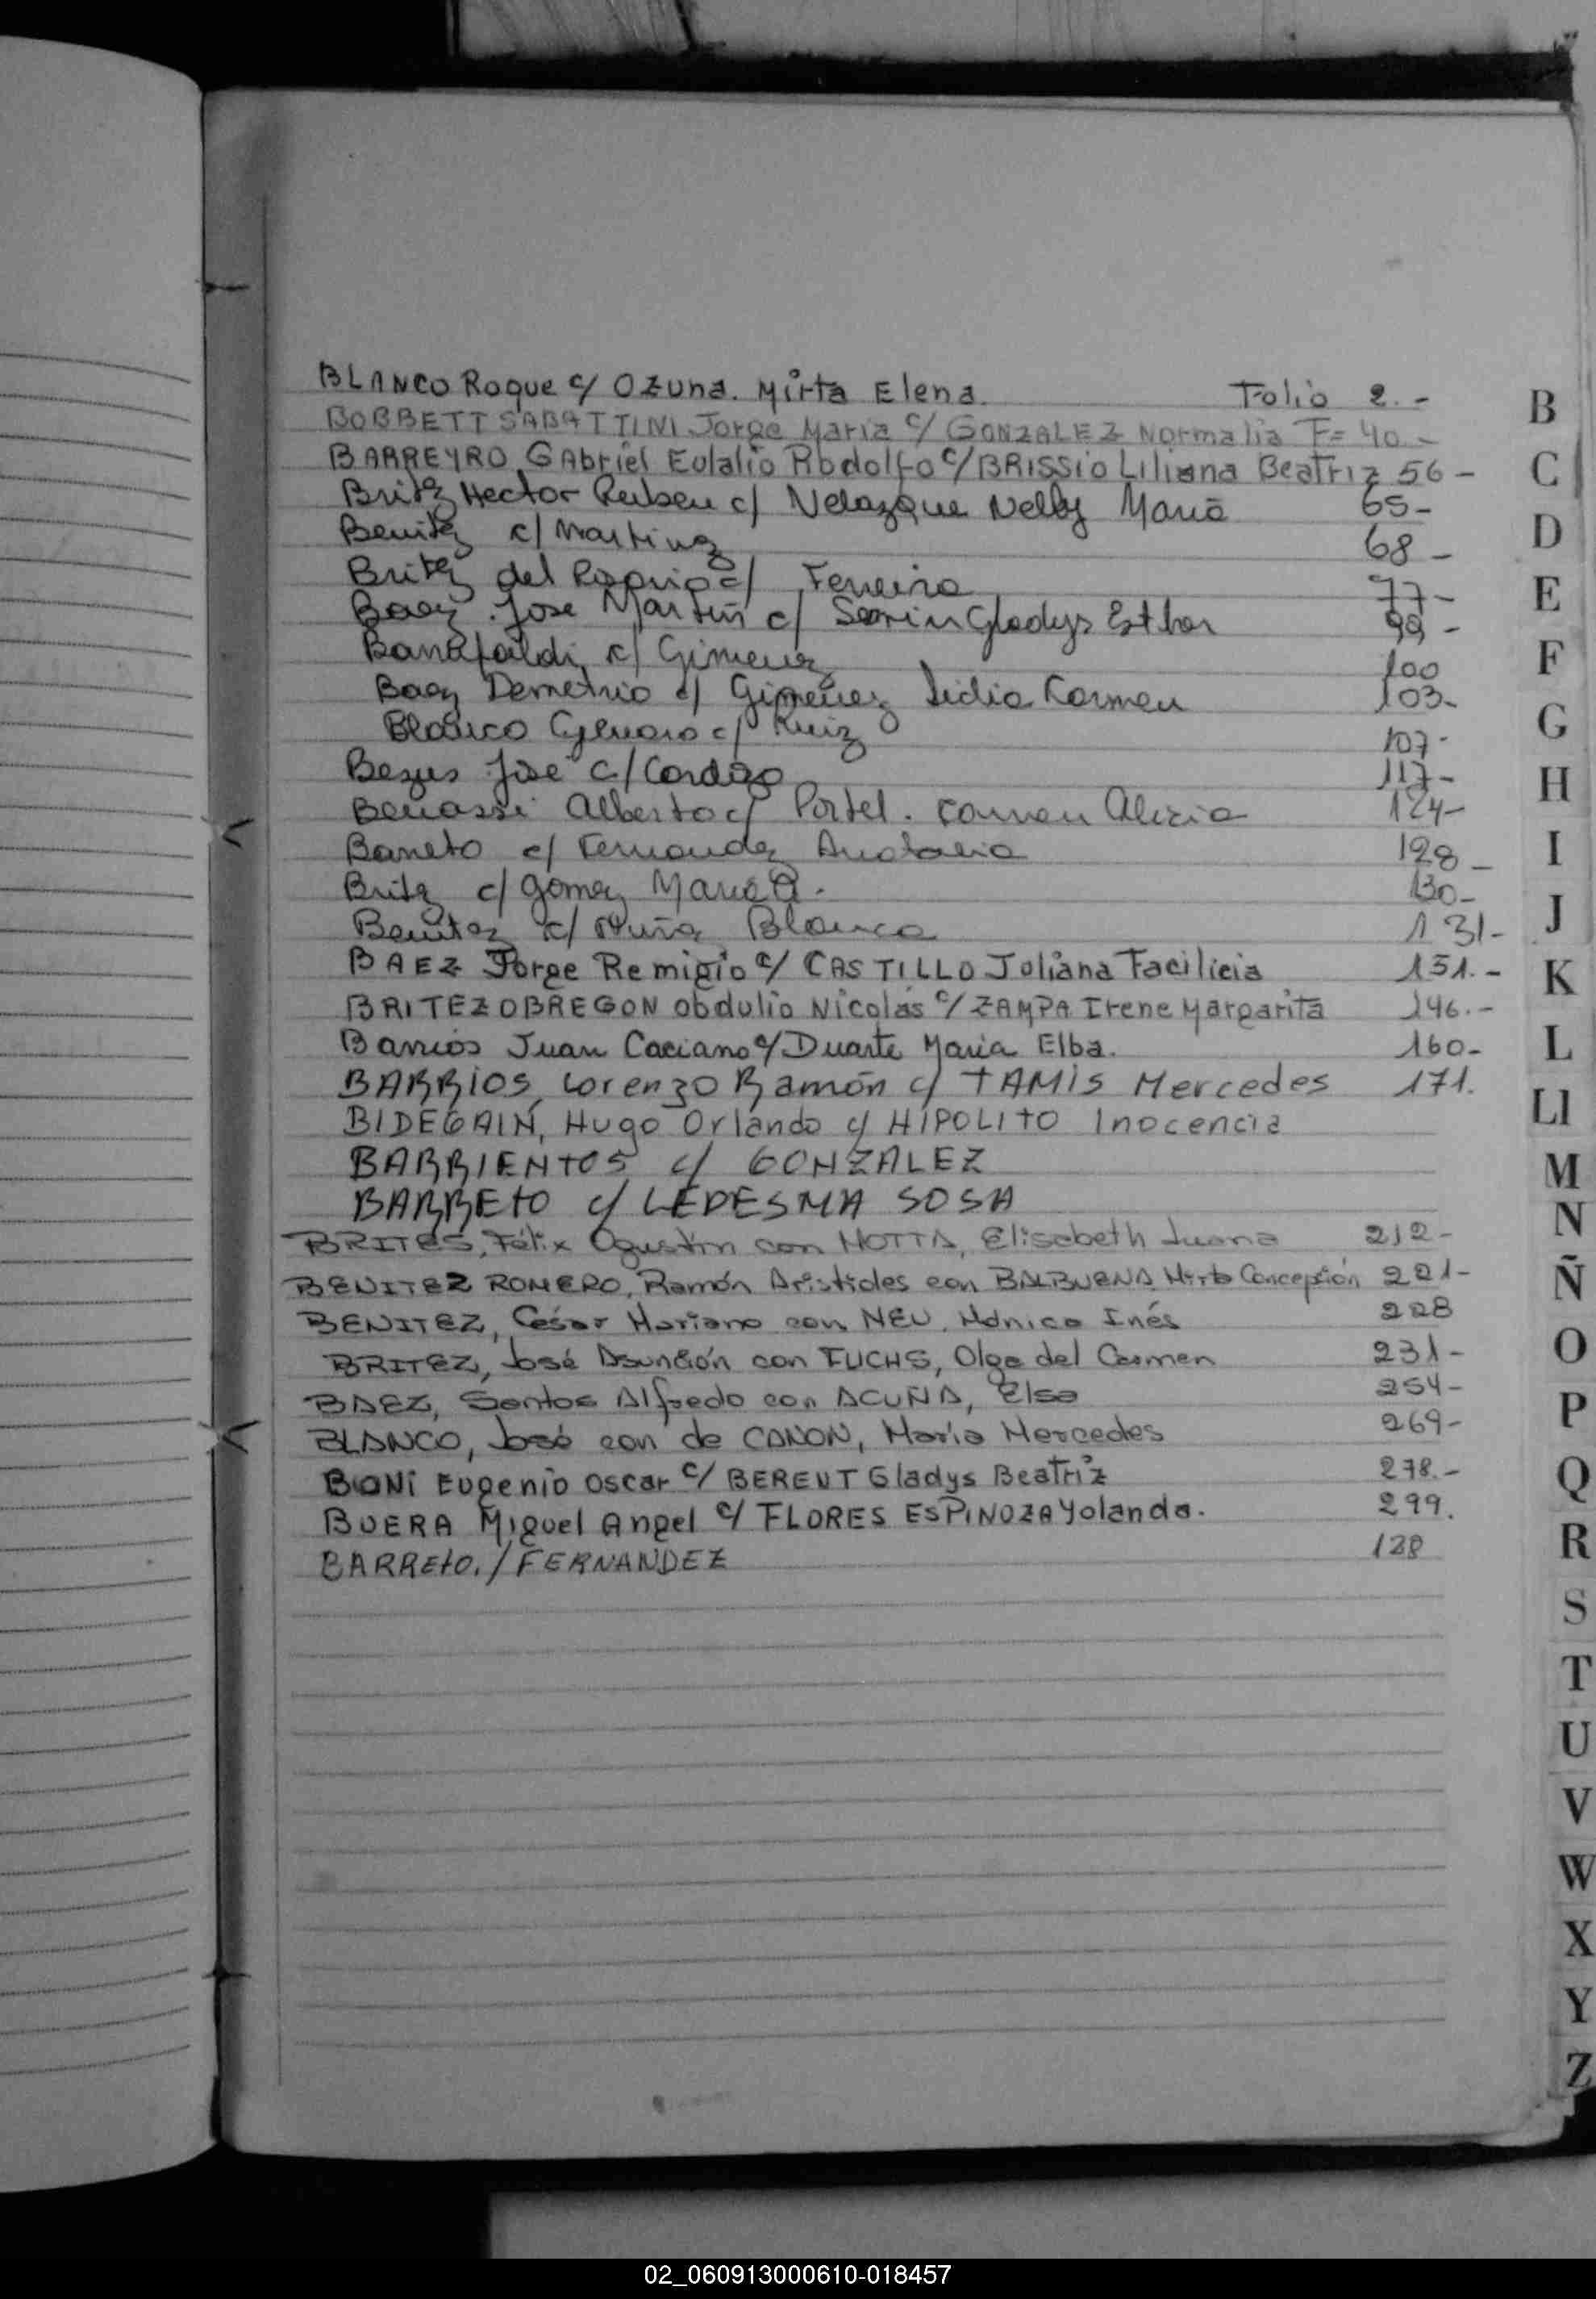 BLANCO Roque c/ OZUNA. Mirta Elena. Folio 2.-
BOBBETT SABATTINI Jorge Maria c/ GONZALEZ Normalia F= 40.-
BARREYRO, GAbriel Eulalio Rodolfo c/ BRISSIO Liliana Beatriz 56-
Britez Hector Ruben c/ Velazque Nelly Maria 65-
Benitez c/ Martinez 68-
Britez del Rosario c/ Ferreira 77-
Baez Jose Martin c/ Gladys Esther 99-
c/ Gimenez 100
Baez Demetrio c/ Gimenez Lidia Carmen 103-
Blanco Genaro c/ Ruiz 107-
Bezus José c/ Cardozo 117-
Benassi Alberto c/ Portel. Carmen Alicia 124-
Barreto c/ Fernandez Anatalia 128-
Britez c/ Gomez Maria A. 130-
Benitez c/ Blanca 131-
BAEZ Jorge Remigio c/ CASTILLO Joliana Facilicia 151.-
BRITEZ OBREGON Obdulio Nicolás c/ ZAMPA Irene Margarita 146.-
Barrios Juan Caciano c/ Duarte Maria Elba. 160-
BARRIOS, Lorenzo Ramón c/ TAMIS Mercedes 171.
BIDEGAIN, Hugo Orlando c/ HIPOLITO Inocencia
BARRIENTOS c/ GONZALEZ
BARRETO c/ LEDESMA SOSA
BRITES, Félix Agustín con MOTTA, Elisabeth Juana 212-
BENITEZ ROMERO, Ramón Aristides con BALBUENA Mirta Concepción 221-
BENITEZ, César Mariano con NEU, Mónica Inés 228
BRITEZ, José Asunción con FUCHS, Olga del Carmen 231-
BAEZ, Santos Alfredo con ACUÑA, Elsa 254-
BLANCO, José con de CANON, María Mercedes 269-
BONI Eugenio Oscar c/ BERENT Gladys Beatriz 278.-
BUERA Miguel Angel c/ FLORES ESPINOZA Yolanda. 299.
BARRETO./FERNANDEZ 128
B
C
D
E
F
G
H
I
J
K
L
Ll
M
N
Ñ
O
P
Q
R
S
T
U
V
W
X
Y
Z
02_060913000610-018457